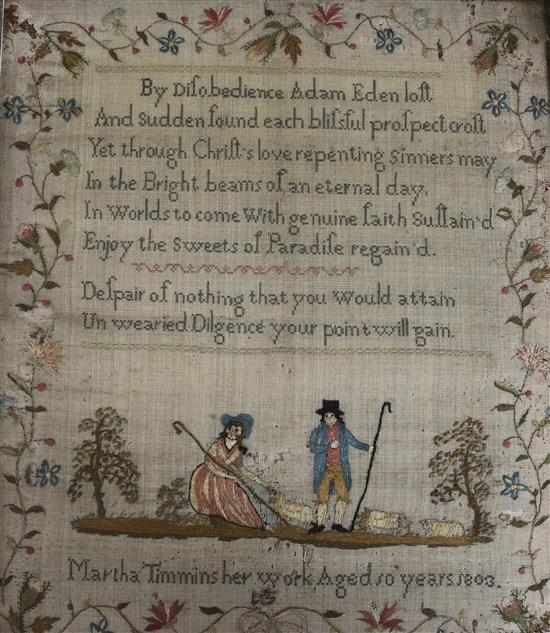 By Diſobedience Adam Eden loſt
And Sudden found each bliſsful proſpect croſt
Yet through Chriſt's love repenting Sinners may
In the Bright beams of an eternal day,
In Worlds to come With genuine faith Suſtain'd
Enjoy the Sweets of Paradiſe regain'd.
Deſpair of nothing that you Would attain
Un wearied Diligence your point will gain.
Martha Timmins her Work Aged 10 years 1803.